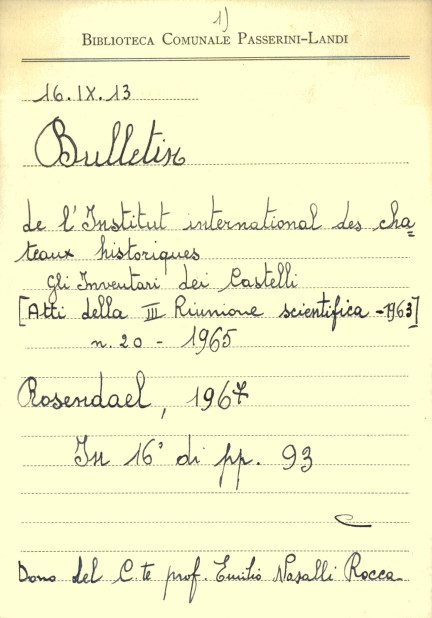 1)
BIBLIOTECA COMUNALE PASSERINI-LANDI
16.IX.13
Bulletin
de l'Institut international des cha=
teaux historiques
Gli Inventari dei Castelli
[Atti della III Riunione scientifica -1963]
n. 20 - 1965
Rosendael, 1967
In 16° di pp. 93
Dono del C.te prof. Emilio Nasalli Rocca